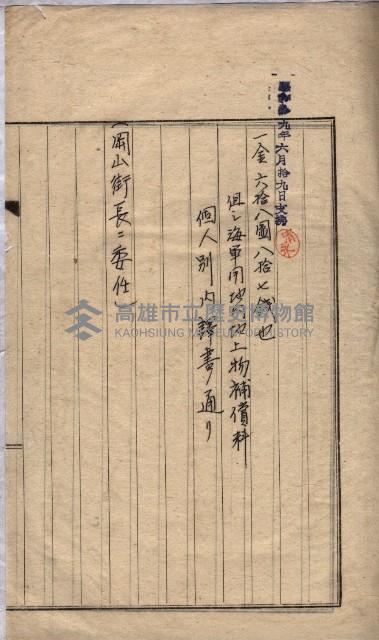 九年六月拾九日支拂
一金六拾八圓八拾七錢也
但シ海軍用地地上物補償料
個人別內譯書ノ通リ
(岡山街長ニ委任)
高雄市立歷史博物館
KAOHSIUNG MUSEUM OF HISTORY